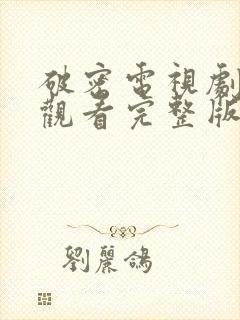 破密電視劇
觀看完整版
劉麗鴿